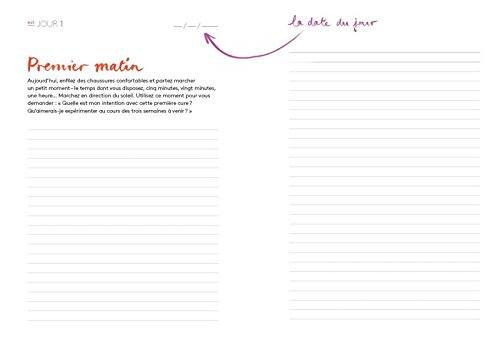 est JOUR 1
__/__/____
la date du jour
Premier matin
Aujourd'hui, enfilez des chaussures confortables et partez marcher
un petit moment – le temps dont vous disposez, cinq minutes, vingt minutes,
une heure... Marchez en direction du soleil. Utilisez ce moment pour vous
demander : « Quelle est mon intention avec cette première cure ?
Qu'aimerais-je expérimenter au cours des trois semaines à venir ? »